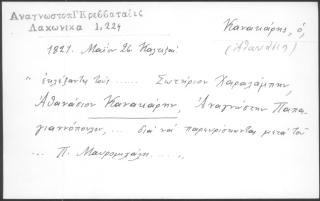 Αναγνωστοπ Γ Κρεββαταίες
Λακωνικα 1,224
Κανακάρης, ὁ,
(Ἀθανάσιη)
1821. Μαΐου 26. Καλτεζαί
" ἐκλέξαντες τοὺς ...... Σωτήριον Χαραλάμπην,
Ἀθανάσιον Κανακάρην, Ἀναγνώστην Παπα-
γιαννόπουλον, ... διὰ νὰ παρευρίσκωνται μετὰ τοῦ
... Π. Μαυρομιχάλη. .... "